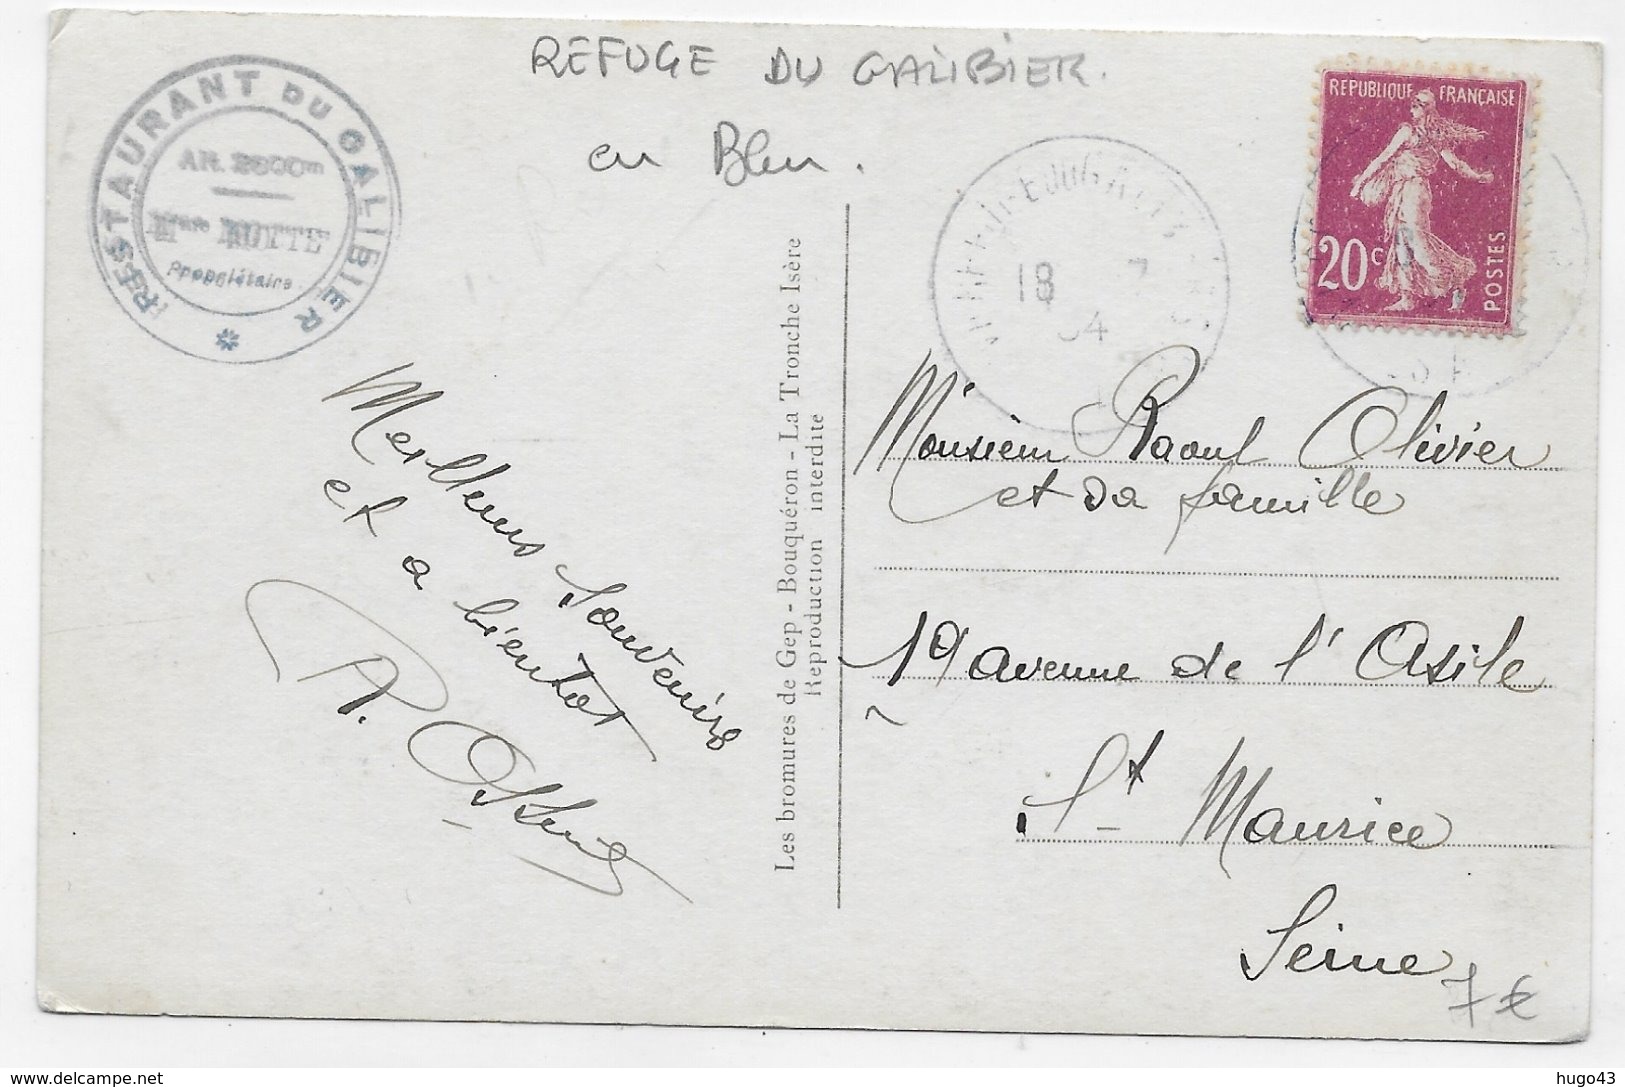 REFUGE DU GALIBIER.
en Bleu.
RESTAURANT DU GALIBIER
Mme
Propriétaire
*
REPUBLIQUE FRANÇAISE
20c
POSTES
18 7
34
Meilleurs Souvenirs
et a bientot
A.
Les bromures de Gep - Bouquéron - La Tronche Isère
Reproduction interdite
Monsieur Raoul Olivier
et sa famille
19 avenue de l'Asile
St Maurice
Seine
7 €
delcampe.net
hugo43